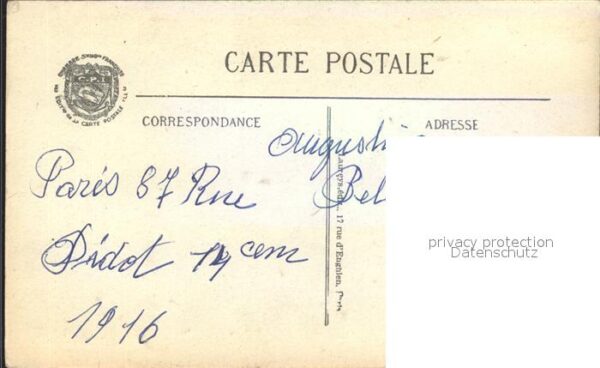 CARTE POSTALE
CORRESPONDANCE
ADRESSE
Augusti
Bel
Paris 87 Rue
Didot 14 cem
1916
17 rue d'Enghien, Paris
privacy protection
Datenschutz